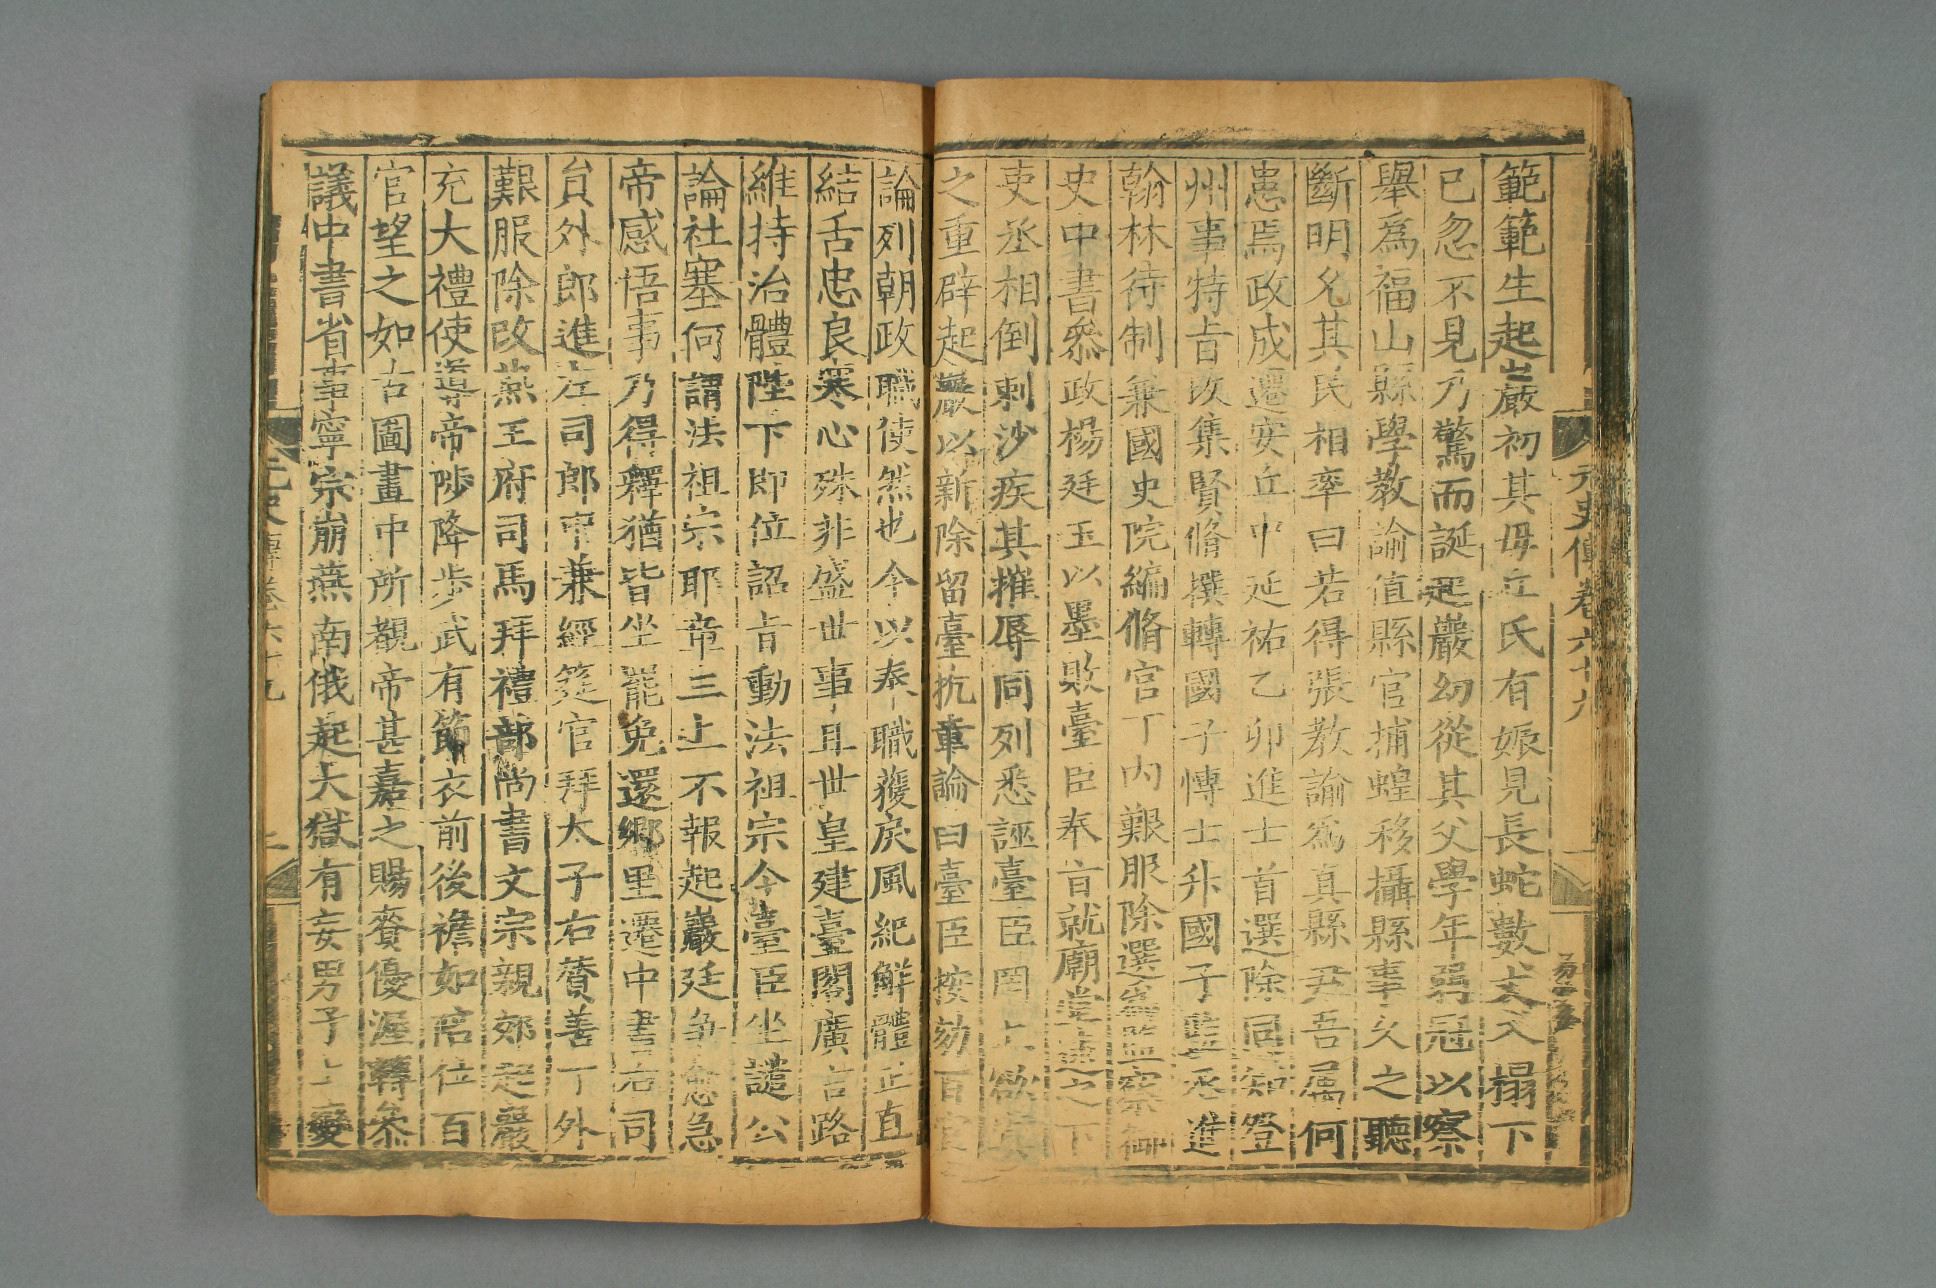 元史傳卷六十九
範範生起巖初其母丘氏有娠見長蛇數丈入榻下
已忽不見乃驚而誕起巖幼從其父學年弱冠以察
舉為福山縣學教諭值縣官捕蝗移攝縣事久之聽
斷明允其民相率曰若得張教諭為真縣尹吾屬何
患焉政成遷安丘中延祐乙卯進士首選除同知登
州事特旨改集賢脩撰轉國子博士升國子監丞進
翰林待制兼國史院編脩官丁內艱服除選為監察御
史中書叅政楊廷玉以墨敗臺臣奉旨就廟堂逮之下
吏丞相倒剌沙疾其摧辱同列悉誣臺臣罔上欲寘
之重辟起巖以新除留臺抗章論曰臺臣按劾百官
論列朝政職使然也今以奉職獲戾風紀解體正直
結舌忠良寒心殊非盛世事且世皇建臺閣廣言路
維持治體陛下即位詔旨動法祖宗今臺臣坐譴公
論杜塞何謂法祖宗耶章三上不報起巖廷爭愈急
帝感悟事乃得釋猶皆坐罷免還鄉里遷中書右司
員外郎進左司郎中兼經筵官拜太子右贊善丁外
艱服除改燕王府司馬拜禮部尚書文宗親郊起巖
充大禮使導帝陟降步武有節衣前後襜如陪位百
官望之如古圖畫中所覩帝甚嘉之賜賚優渥轉叅
議中書省事寧宗崩燕南俄起大獄有妄男子上變
元史傳卷六十九